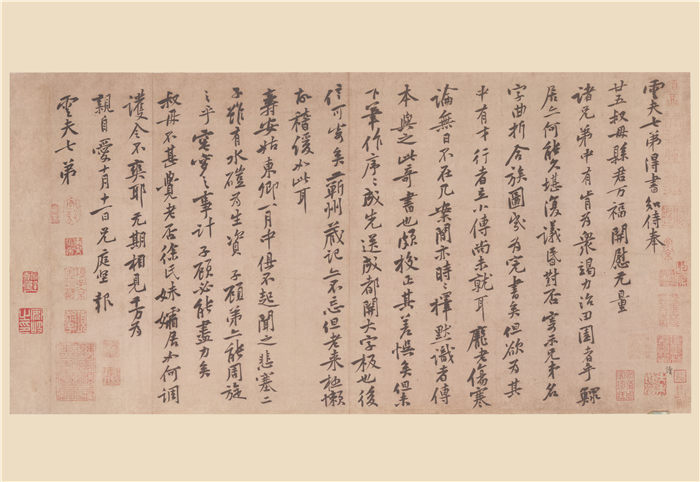 雲夫七弟得書知侍奉
廿五叔母縣君万福開慰无量
諸兄弟中有肯為衆竭力治田園者乎鰥
居亦何能久堪復議昏對否寄示兄弟名
字曲折合族圖幾为完書矣但欲为其
中有才行者立小傳尚未就耳龐老傷寒
論無日不在几案間亦時〻擇默識者傳
本與之此奇書也頗校正其差悮矣但未
下筆作序〻成先送成都開大字板也後
信可寄矣蘄州藏記亦不忘但老來極懶
故稽緩如此耳
壽安姑東卿一月中俱不起聞之悲塞二
子雖有水磑为生資子顧弟亦能周旋
之乎窀穸之事計子顧必能盡力矣
叔母不甚覺老否徐氏妹孀居如何調
護令不爽耶无期相見千万为
親自愛十月十一日兄庭堅報
雲夫七弟